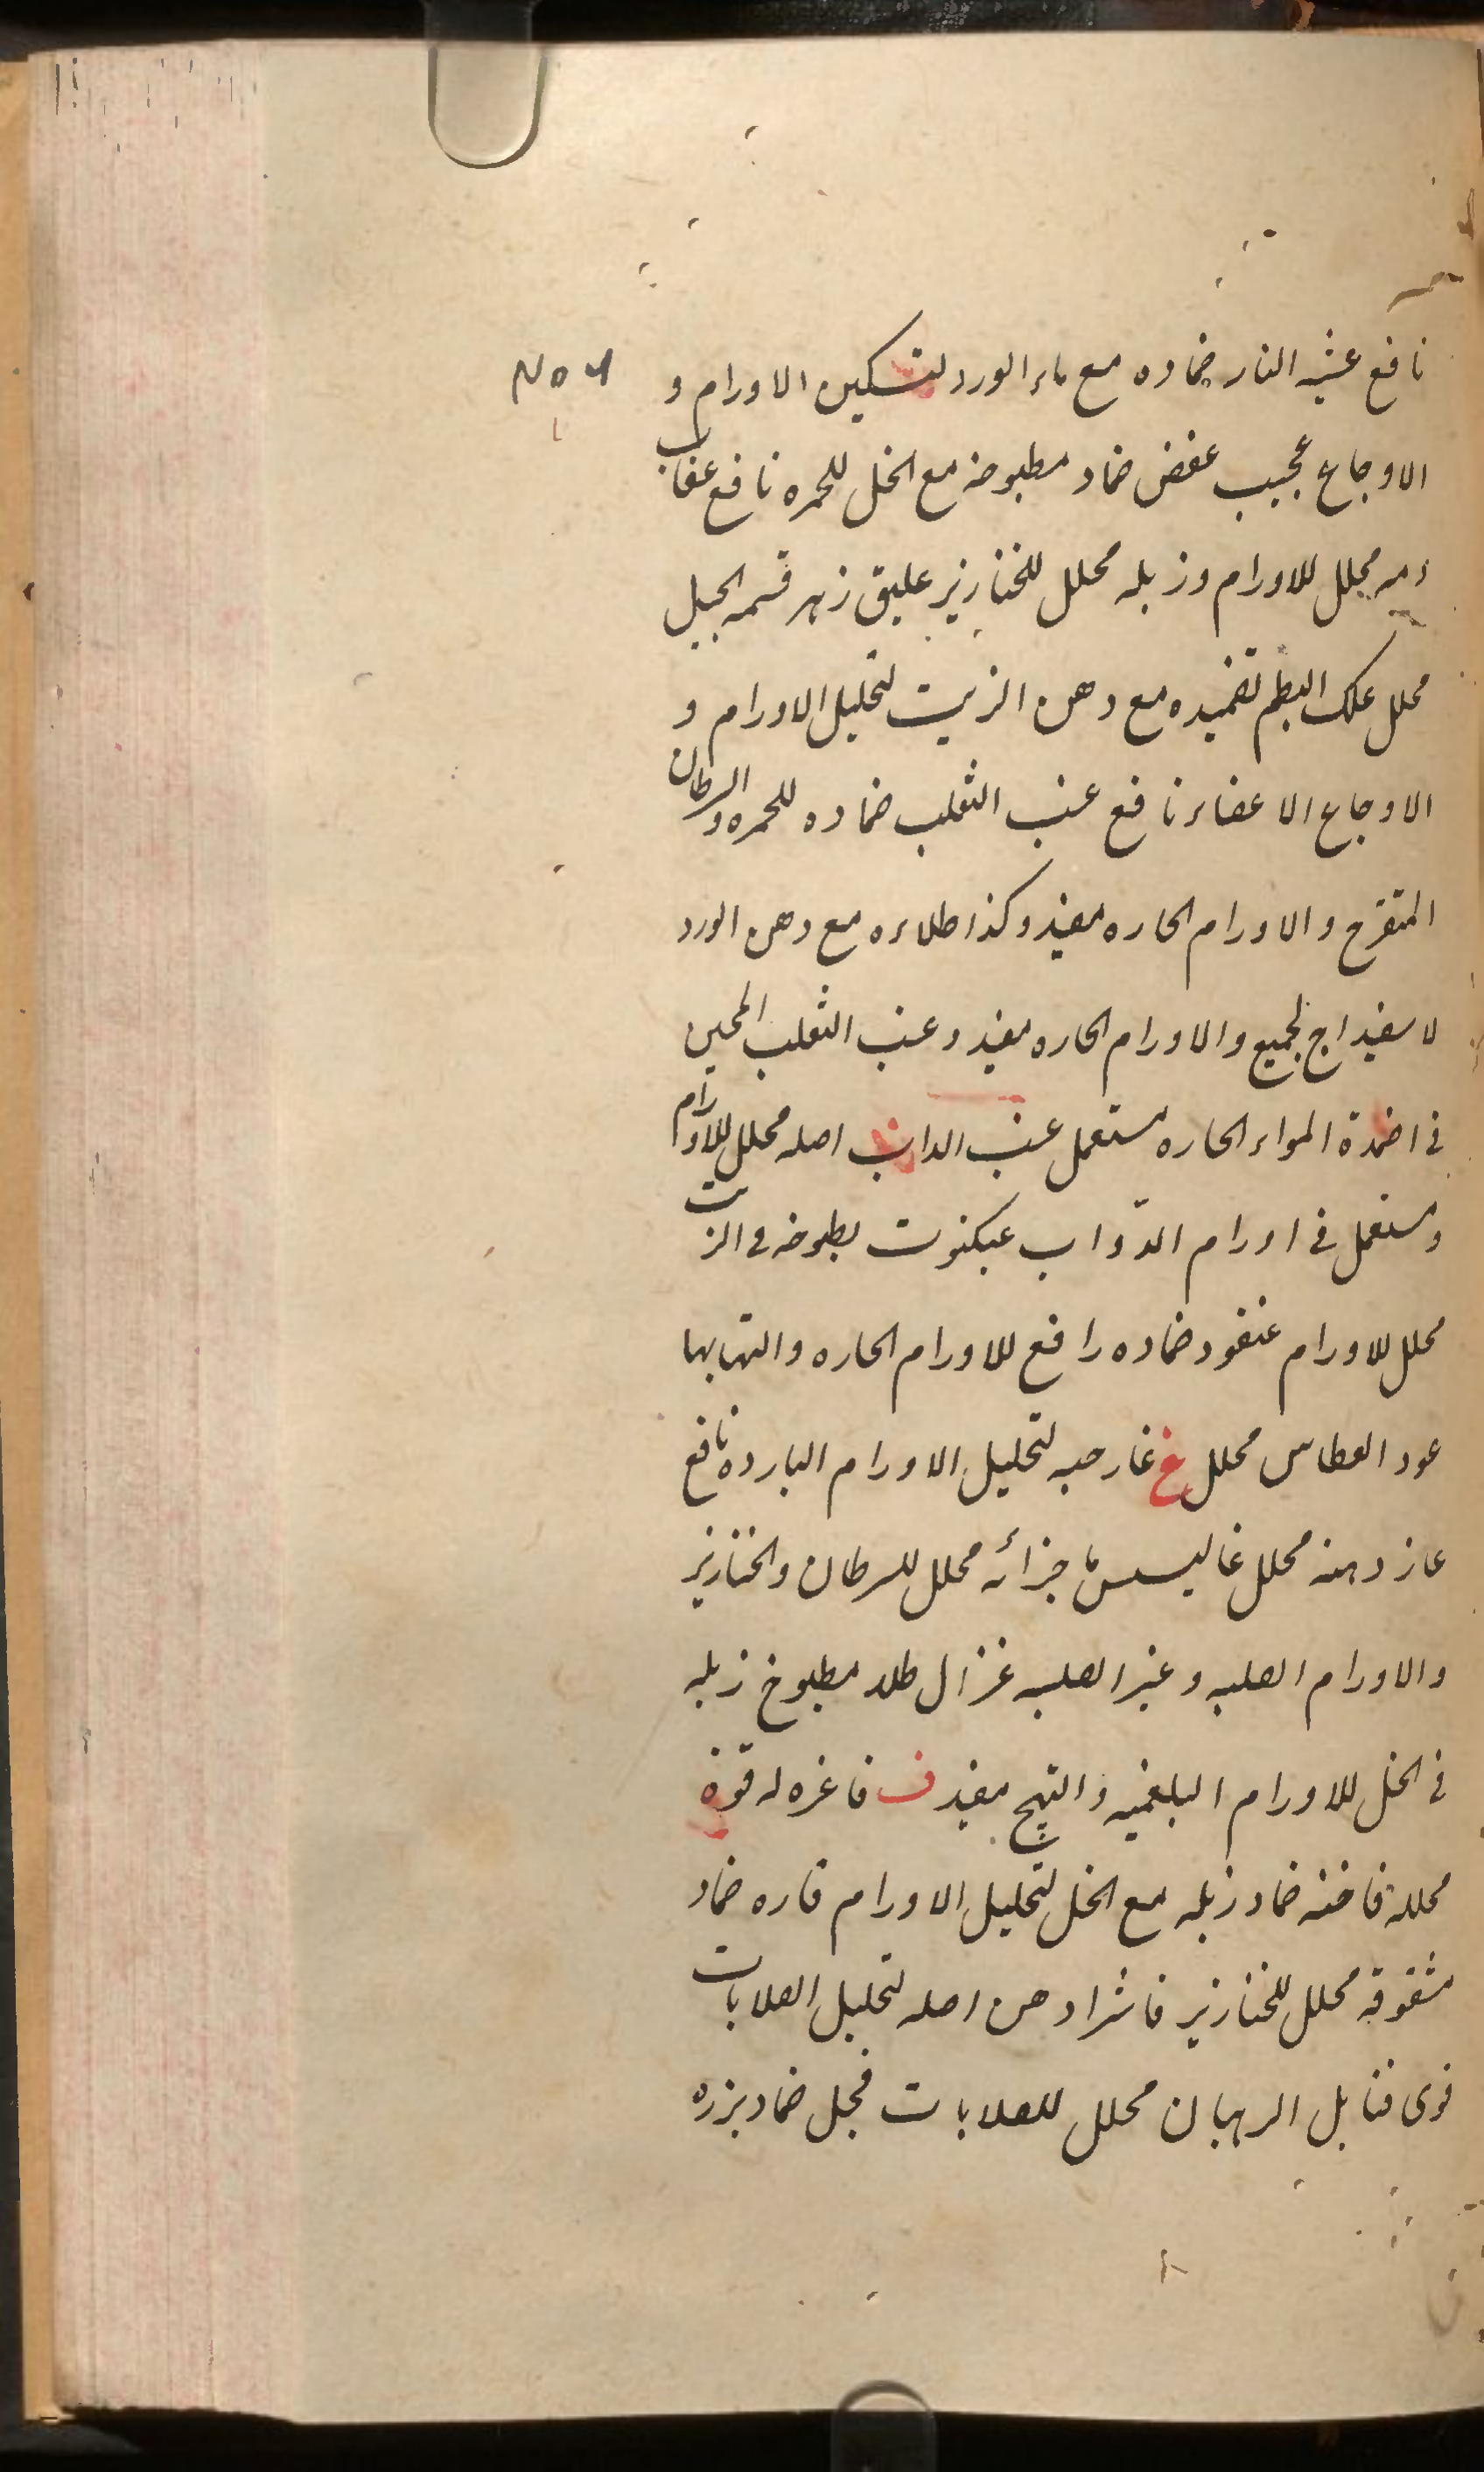 نافع عشبه النار ضماده مع ماء الورد لتسكين الاورام و
الاوجاع عجيب عفص ضماد مطبوخه مع الخل للحمره نافع عقاب
دمه محلل للاورام وزبله محلل للخنازير عليق زهر قسمه الجبل
محلل علك البطم تضميده مع دهن الزيت لتحليل الاورام و
الاوجاع الاعضاء نافع عنب الثعلب ضماده للحمره والسرطان
المتقرح والاورام الحاره مفيد وكذا طلاءه مع دهن الورد
لاسفيداج لجميع والاورام الحاره مفيد وعنب الثعلب
فى اضمدة المواد الحاره مستعمل عنب الداب اصله محلل للاورام
ومستعمل فى اورام الدّواب عنكبوت بطبوخه فى الزيت
محلل للاورام عنقود ضماده رافع للاورام الحاره والتهابها
عود العطاس محلل غ غار حبه لتحليل الاورام البارده نافع
غاز دهنه محلل غاليسس باجزائه محلل للسرطان والخنازير
والاورام الصلبه وغير الصلبه غزال طلاء مطبوخ زبله
فى الخل للاورام البلغميه والتهيج مفيد ف فاغره له قوة
محللة فاخته ضماد زبله مع الخل لتحليل الاورام فاره ضماد
مشقوقه محلل للخنازير فاشرا دهن اصله لتحليل الصلابات
قوى فنابل الرهبان محلل للصلابات فجل ضماد بزره